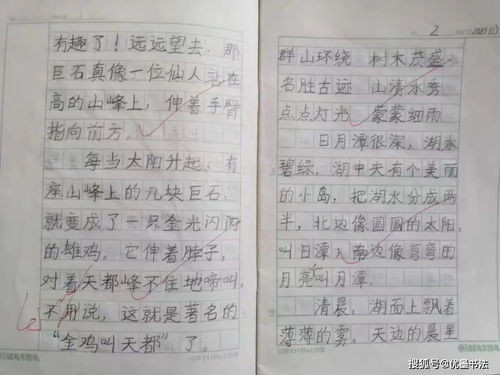 有趣了！远远望去，那
巨石真像一位仙人站在
高的山峰上，伸着手臂
指向前方。
每当太阳升起，有
座山峰上的几块巨石，
就变成了一只金光闪闪
的雄鸡。它伸着脖子，
对着天都峰不住地啼叫。
不用说，这就是著名的
“金鸡叫天都”了。
2
群山环绕 树木茂盛
名胜古迹 山清水秀
点点灯光 蒙蒙细雨
日月潭很深，湖水
碧绿。湖中央有个美丽
的小岛，把湖水分成两
半，北边像圆圆的太阳，
叫日潭；南边像弯弯的
月亮叫月潭。
清晨，湖面上飘着
薄薄的雾。天边的晨星
搜狐号@优墨书法